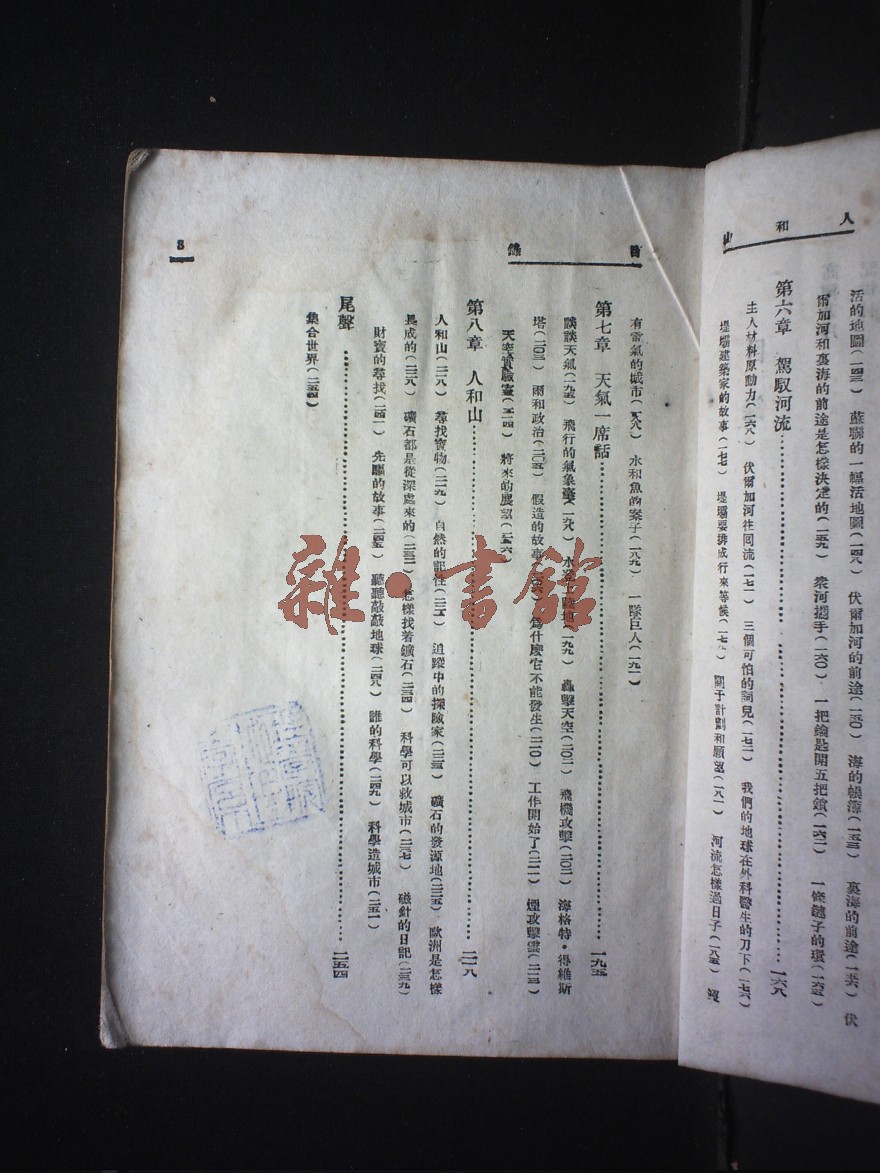 人和山
活的地圖(一四三) 蘇聯的一幅活地圖(一四九) 伏爾加河的前途(一五〇) 海的帳簿(一五三) 裏海的前途(一五六) 伏
爾加河和裏海的前途是怎樣決定的(一五九) 衆河選手(一六〇) 一把鑰匙開五把鎖(一六二) 一條鏈子的環(一六五)
第六章 駕馭河流 一六八
主人材料原動力(一六八) 伏爾加河往回流(一七一) 三個可怕的詞兒(一七二) 我們的地球在外科醫生的刀下(一七六)
堤壩建築家的故事(一七七) 堤壩要排成行來等候(一七九) 關于計劃和願望(一八一) 河流怎樣過日子(一八五)
目錄
有電氣的城市(一八八) 水和魚的案子(一八九) 一隊巨人(一九一)
第七章 天氣一席話 一九五
談談天氣(一九五) 飛行的氣象臺(一九八) 轟擊天空(二〇一) 飛機攻擊(二〇二) 海格特·得維斯
塔(二〇三) 雨和政治(二〇五) 假造的故事 爲什麼它不能發生(二一〇) 工作開始了(二一一) 煙攻擊雲(二一三)
天空實驗室(二一四) 將來的展望(二一六)
第八章 人和山 二一八
人和山(二一八) 尋找寶物(二一九) 自然的記性 追蹤中的探險家 礦石的發源地(二二五) 歐洲是怎樣
長成的(二二八) 礦石都是從深處來的 怎樣找着鑛石(二三四) 科學可以救城市(二三七) 磁針的日記(二三九)
財寶的尋找(二四一) 先驅的故事(二四五) 聽聽敲敲地球(二四八) 誰的科學(二四九) 科學造城市(二五一)
尾聲 二五四
集合世界(二五四)
3
雜·書館